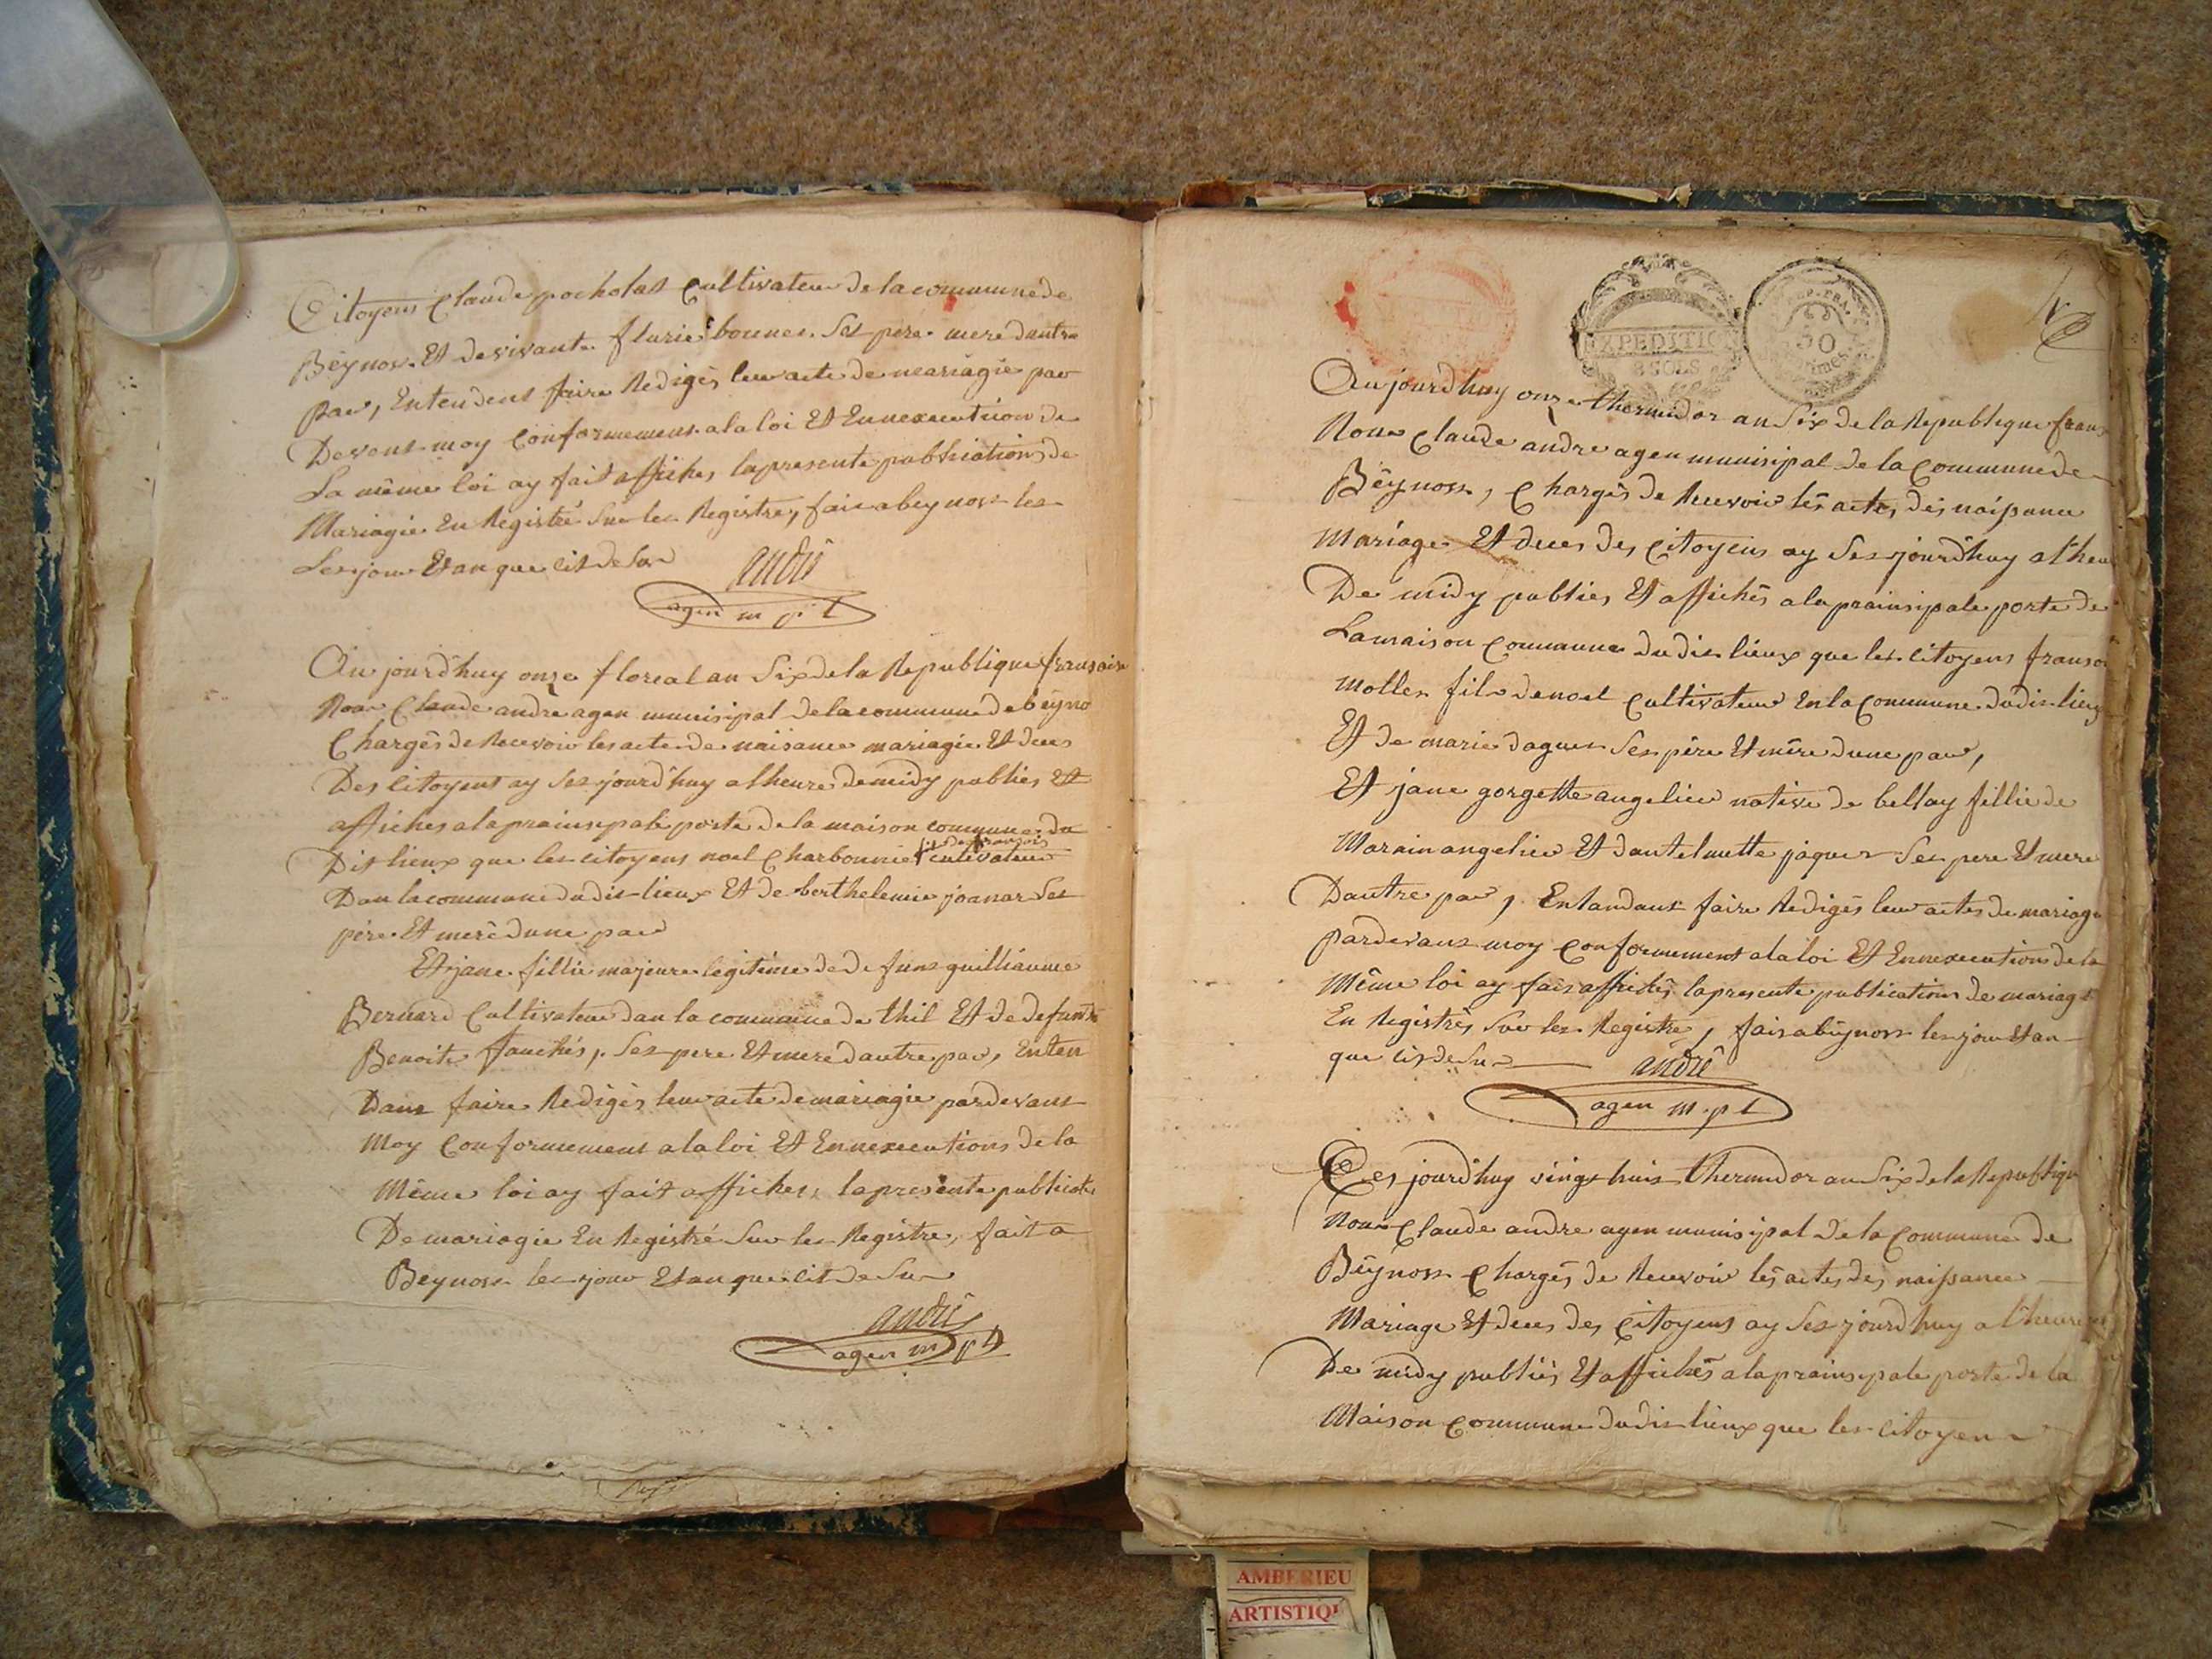 Citoyens Claude pocholat Cultivateur de la commune de
Beynos Et de vivante flurie bonnes Ses pere mere dautre
par, Entendent faire Redigés leur acte de mariagie par
Devent moy Conformement a la loi Et Ennexecutiion de
La même loi ay fait affiches la presente publications de
Mariagie En Registré Sur les Registre, fait a beynost les
Les jour Et an que cit de Sus
andré
agen m p l
Au jourd'huy onze floreal an Six de la Republique fransaise
Nous Claude andré agen municipal de la commune de beyno
Chargés de Recevoir les acte de naisance mariagie Et deces
Des Citoyent ay Ses jourd'huy a lheure de midy publies Et
affiches a la prainsipale porte de la maison commune du
fis de fransois
Dit lieux que les citoyens noel Charbonnier cultivateur
Dan la commune du dit lieux Et de berthelemie joanar Ses
père Et merè dune par
Et jane fillie majeure legitime de defunt guilliaume
Bernard Cultivateur dan la commune de thil Et de defunte
Benoite fauchés, Ses pere Et mere dautre par, Enten
Dant faire Redigés leur acte de mariagie pardevant
Moy Conformement a la loi Et Ennexecutions de la
Même loi ay fait affiches, la presente publicati
De mariagie En Registré Sur les Registre, fait a
Beynost les jour Et an que cit de Sus
andré
agen m p l
EXPEDITIO
8 SOLS
REP. FRA.
50
Au jourd'huy onze thermidor an Six de la Republique frans
Nous Claude andre agen munisipal de la Commune de
Bêynost, Chargés de Recevoir lés actes, dés naissance
Mariage Et deces des Citoyens ay Ses jourd'huy a lheu
De midy publies Et affichés a la prainsipale porte de
La maison Commune du dit lieux que les citoyens franso
mollen fils de noel Cultivateur En la Commune du dit lieux
Et de marie daguer Ses père Et mère dune par,
Et jane gorgette angelier native de bellay fillie de
Marain angelier Et dantelmette jaquer Ses pere Et mere
Dautre par, Entandant faire Redigés leur actes de mariage
pardevant moy Conformement a la loi Et Ennexecutions de la
Même loi ay fait affichés la presente publication de mariage
En Registrés Sur les Registre, fait a bêynost les jour Et an
que cit de Sus
andrê
agen m. p l
Ces jourd'huy vingt huit thermidor an Six de la Republique
Nous Claude andre agen munisipal De la Commune de
Bêynost Chargés de Recevoir lés actes des naissance
Mariage Et deces des Citoyens ay Ses jourd'huy a lheure
De midy publiés Et affichés a la prainsipale porte de la
Maison Commune du dit lieux que les citoyens
AMBERIEU
ARTISTIQU